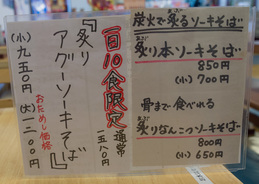 一日10食限定
通常一五八〇円
『炙り
アグーソーキそば』
おためし価格
(小)九五〇円 (大)一二〇〇円
炭火で炙るソーキそば
炙り本ソーキそば
850円
(小)700円
骨まで食べれる
炙りなんこつソーキそば
800円
(小)650円